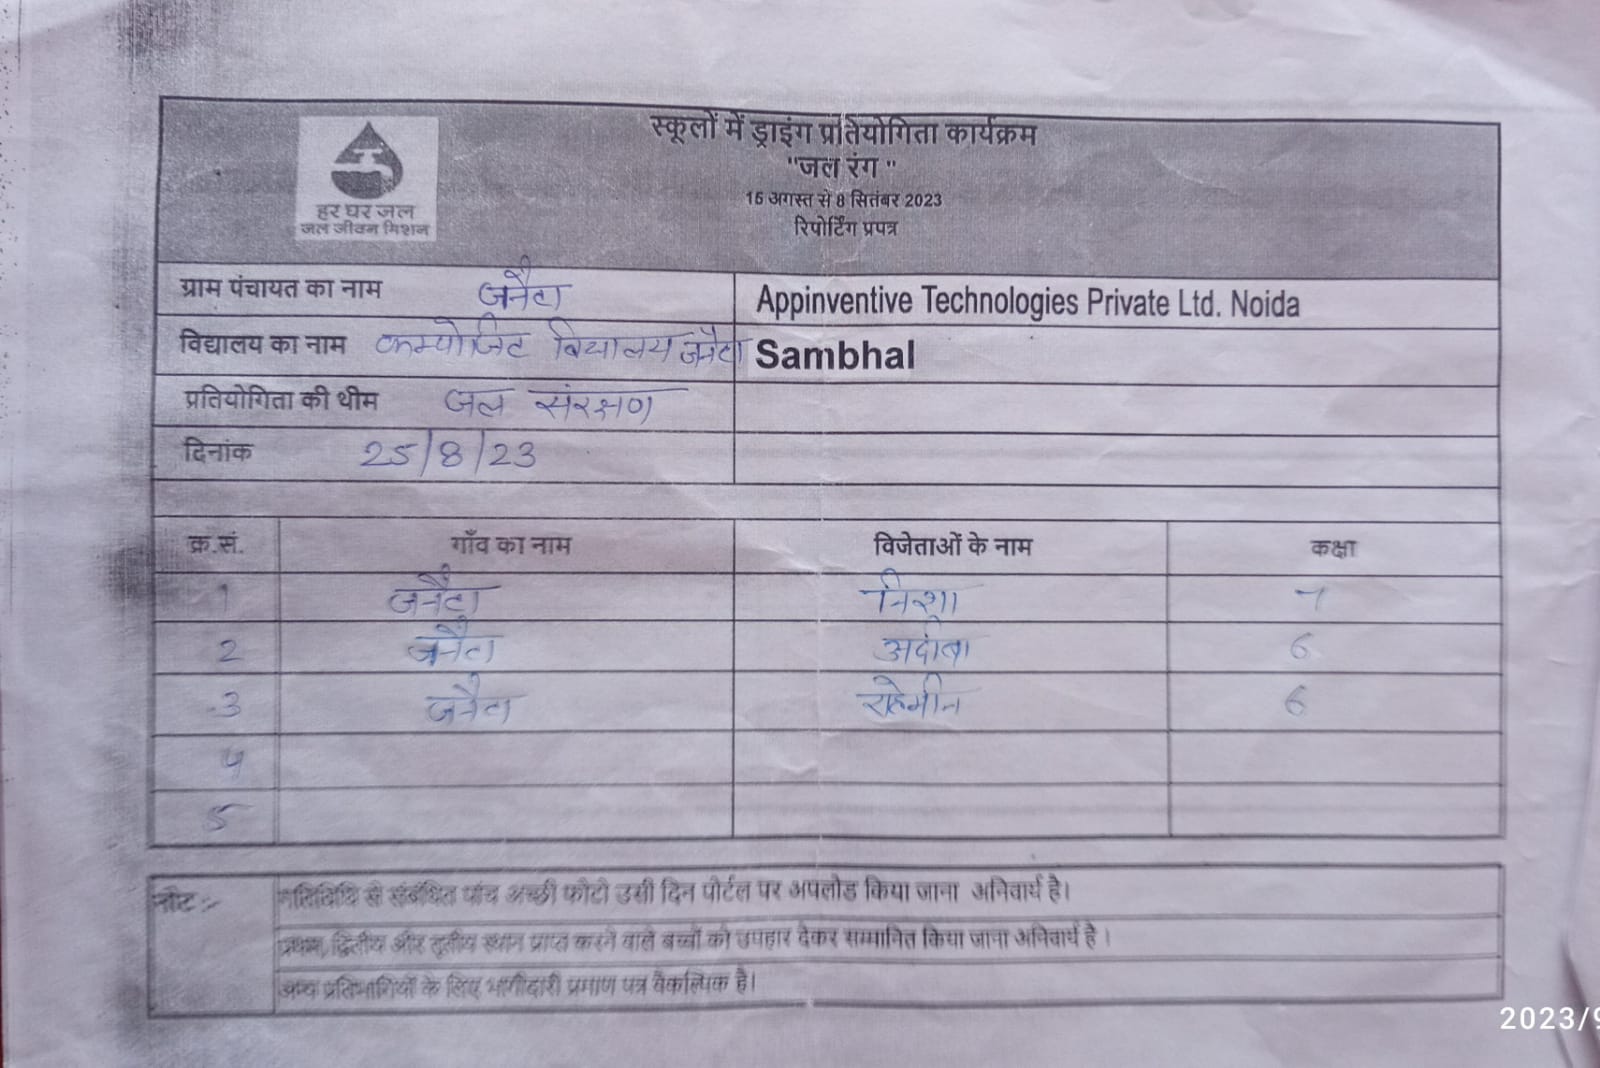 स्कूलों में ड्राइंग प्रतियोगिता कार्यक्रम
"जल रंग "
15 अगस्त से 8 सितंबर 2023
रिपोर्टिंग प्रपत्र
हर घर जल
जल जीवन मिशन
ग्राम पंचायत का नाम जनैटा Appinventive Technologies Private Ltd. Noida
विद्यालय का नाम कम्पोजिट विद्यालय जनैटा Sambhal
प्रतियोगिता की थीम जल संरक्षण
दिनांक 25/8/23
क्र.सं. गाँव का नाम विजेताओं के नाम कक्षा
1 जनैटा निशा 7
2 जनैटा अदीबा 6
3 जनैटा 6
4
5
नोट :- गतिविधि से संबंधित पांच अच्छी फोटो उसी दिन पोर्टल पर अपलोड किया जाना अनिवार्य है।
प्रथम, द्वितीय और तृतीय स्थान प्राप्त करने वाले बच्चों को उपहार देकर सम्मानित किया जाना अनिवार्य है ।
अन्य प्रतिभागियों के लिए भागीदारी प्रमाण पत्र वैकल्पिक है।
2023/9